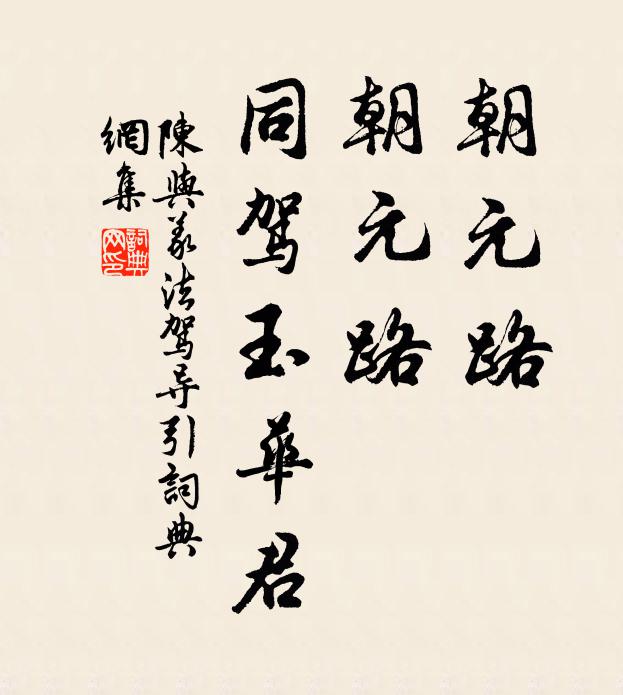 朝元路
朝元路
同驾玉華君
陳與義法驾导引詞典
網集
詞典
网印